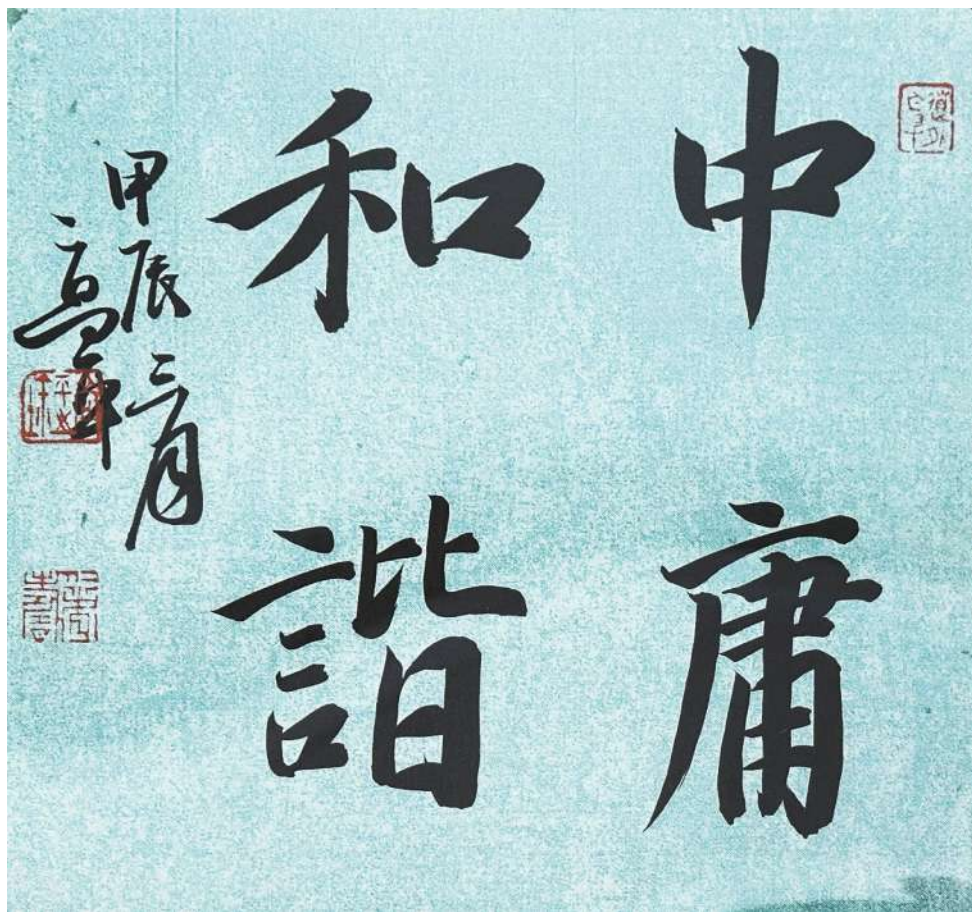 中庸
和諧
甲辰三月